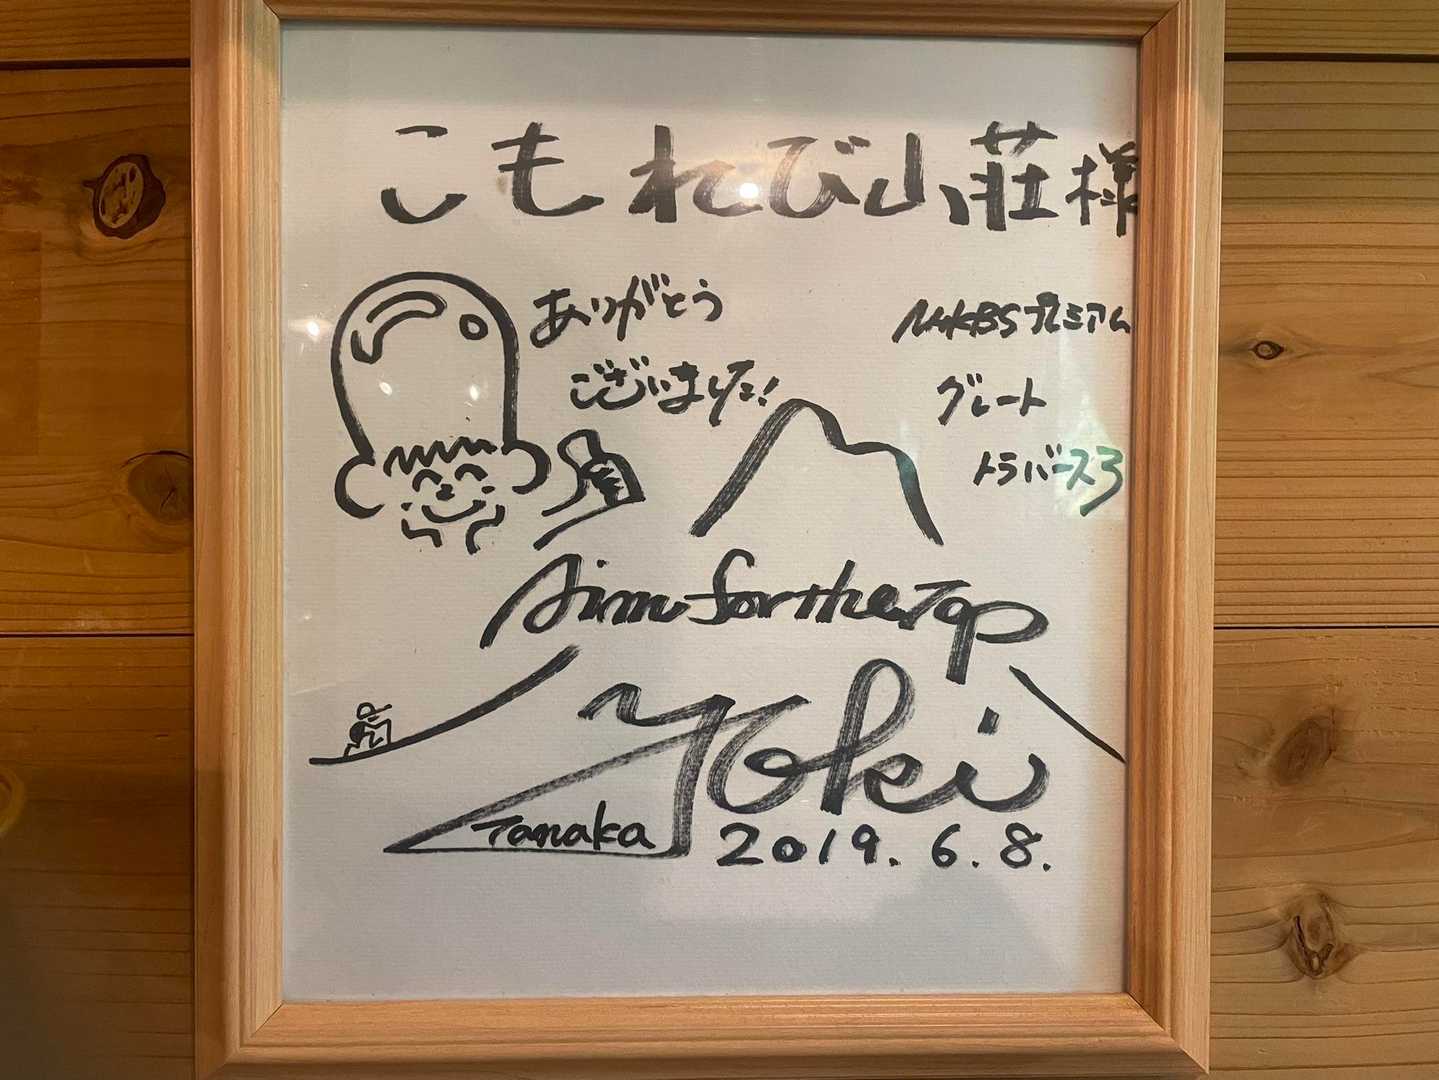 こもれび山荘様
ありがとう
ございました!
NHKBSプレミアム
グレート
トラバース3
Aim for the Top
Yoki
Tanaka
2019.6.8.